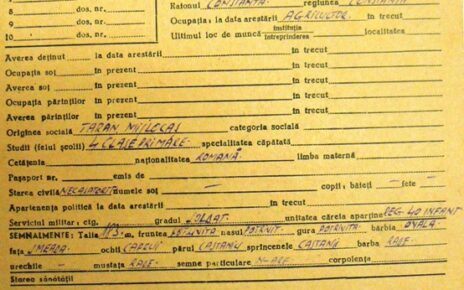 8 dos. nr. Raionul CONSTANTA regiunea CONSTANTA
9 dos. nr. Ocupația la data arestării AGRICULTOR în trecut
10 dos. nr. Ultimul loc de muncă instituția întreprinderea localitatea
Averea deținut la data arestării în trecut
Ocupația soț în prezent în trecut
Averea soț în prezent în trecut
Ocupația părinților în prezent în trecut
Averea părinților în prezent în trecut
Originea socială ȚARAN MIJLOCAȘ categoria socială
Studii (felul școlii) 4 CLASE PRIMARE specialitatea căpătată
Cetățenia naționalitatea ROMANĂ limba maternă
Pașaport nr. emis de
Starea civilă NECASATORIT numele soț — copii: băieți — fete —
Apartenența politică la data arestării în trecut
Serviciul militar: ctg. gradul SOLDAT unitatea căreia aparține REG. 40 INFANT
SEMNALMENTE: Talia 1,73 m. fruntea POTRIVITA nasul POTRIVIT gura POTRIVITA bărbia OVALA
fața SMEADA ochii CAPRUI părul CASTANIU sprîncenele CASTANII barba RADE
urechile — mustața RADE semne particulare N-ARE corpolența
Starea sănătății